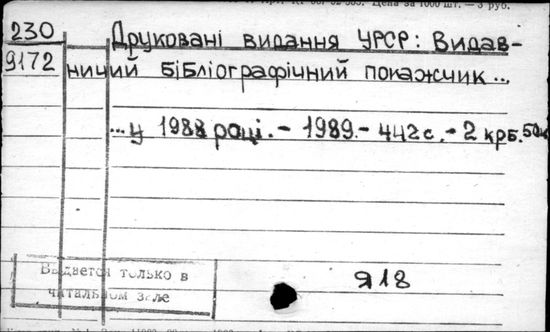 Цена за 1000 шт. — 3 руб.
230
9172
Друковані видання УРСР: Видав-
ничий бібліографічний покажчик...
...у 1988 році. – 1989. – 442 с. – 2 крб. 50к
Выдается только в
читальном зале
Я18